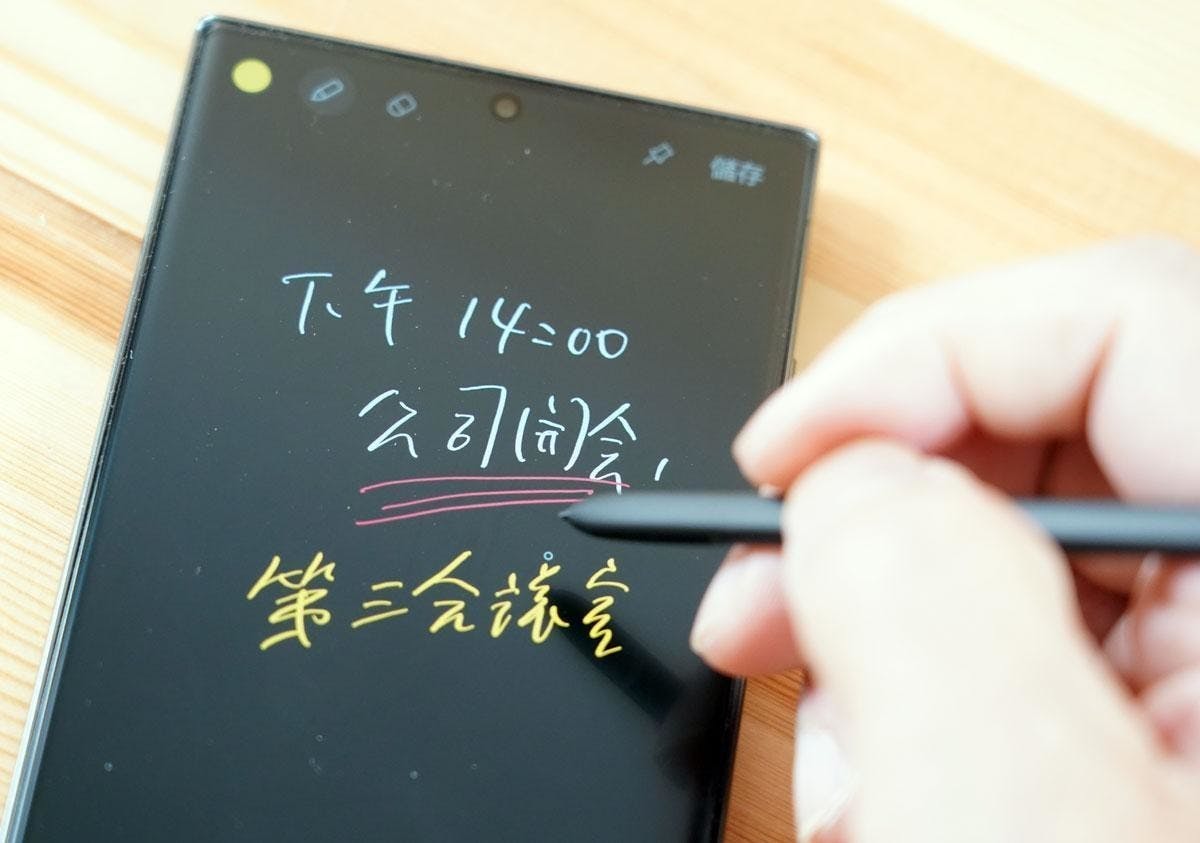 儲存
下午 14:00
公司開会,
第三会議室